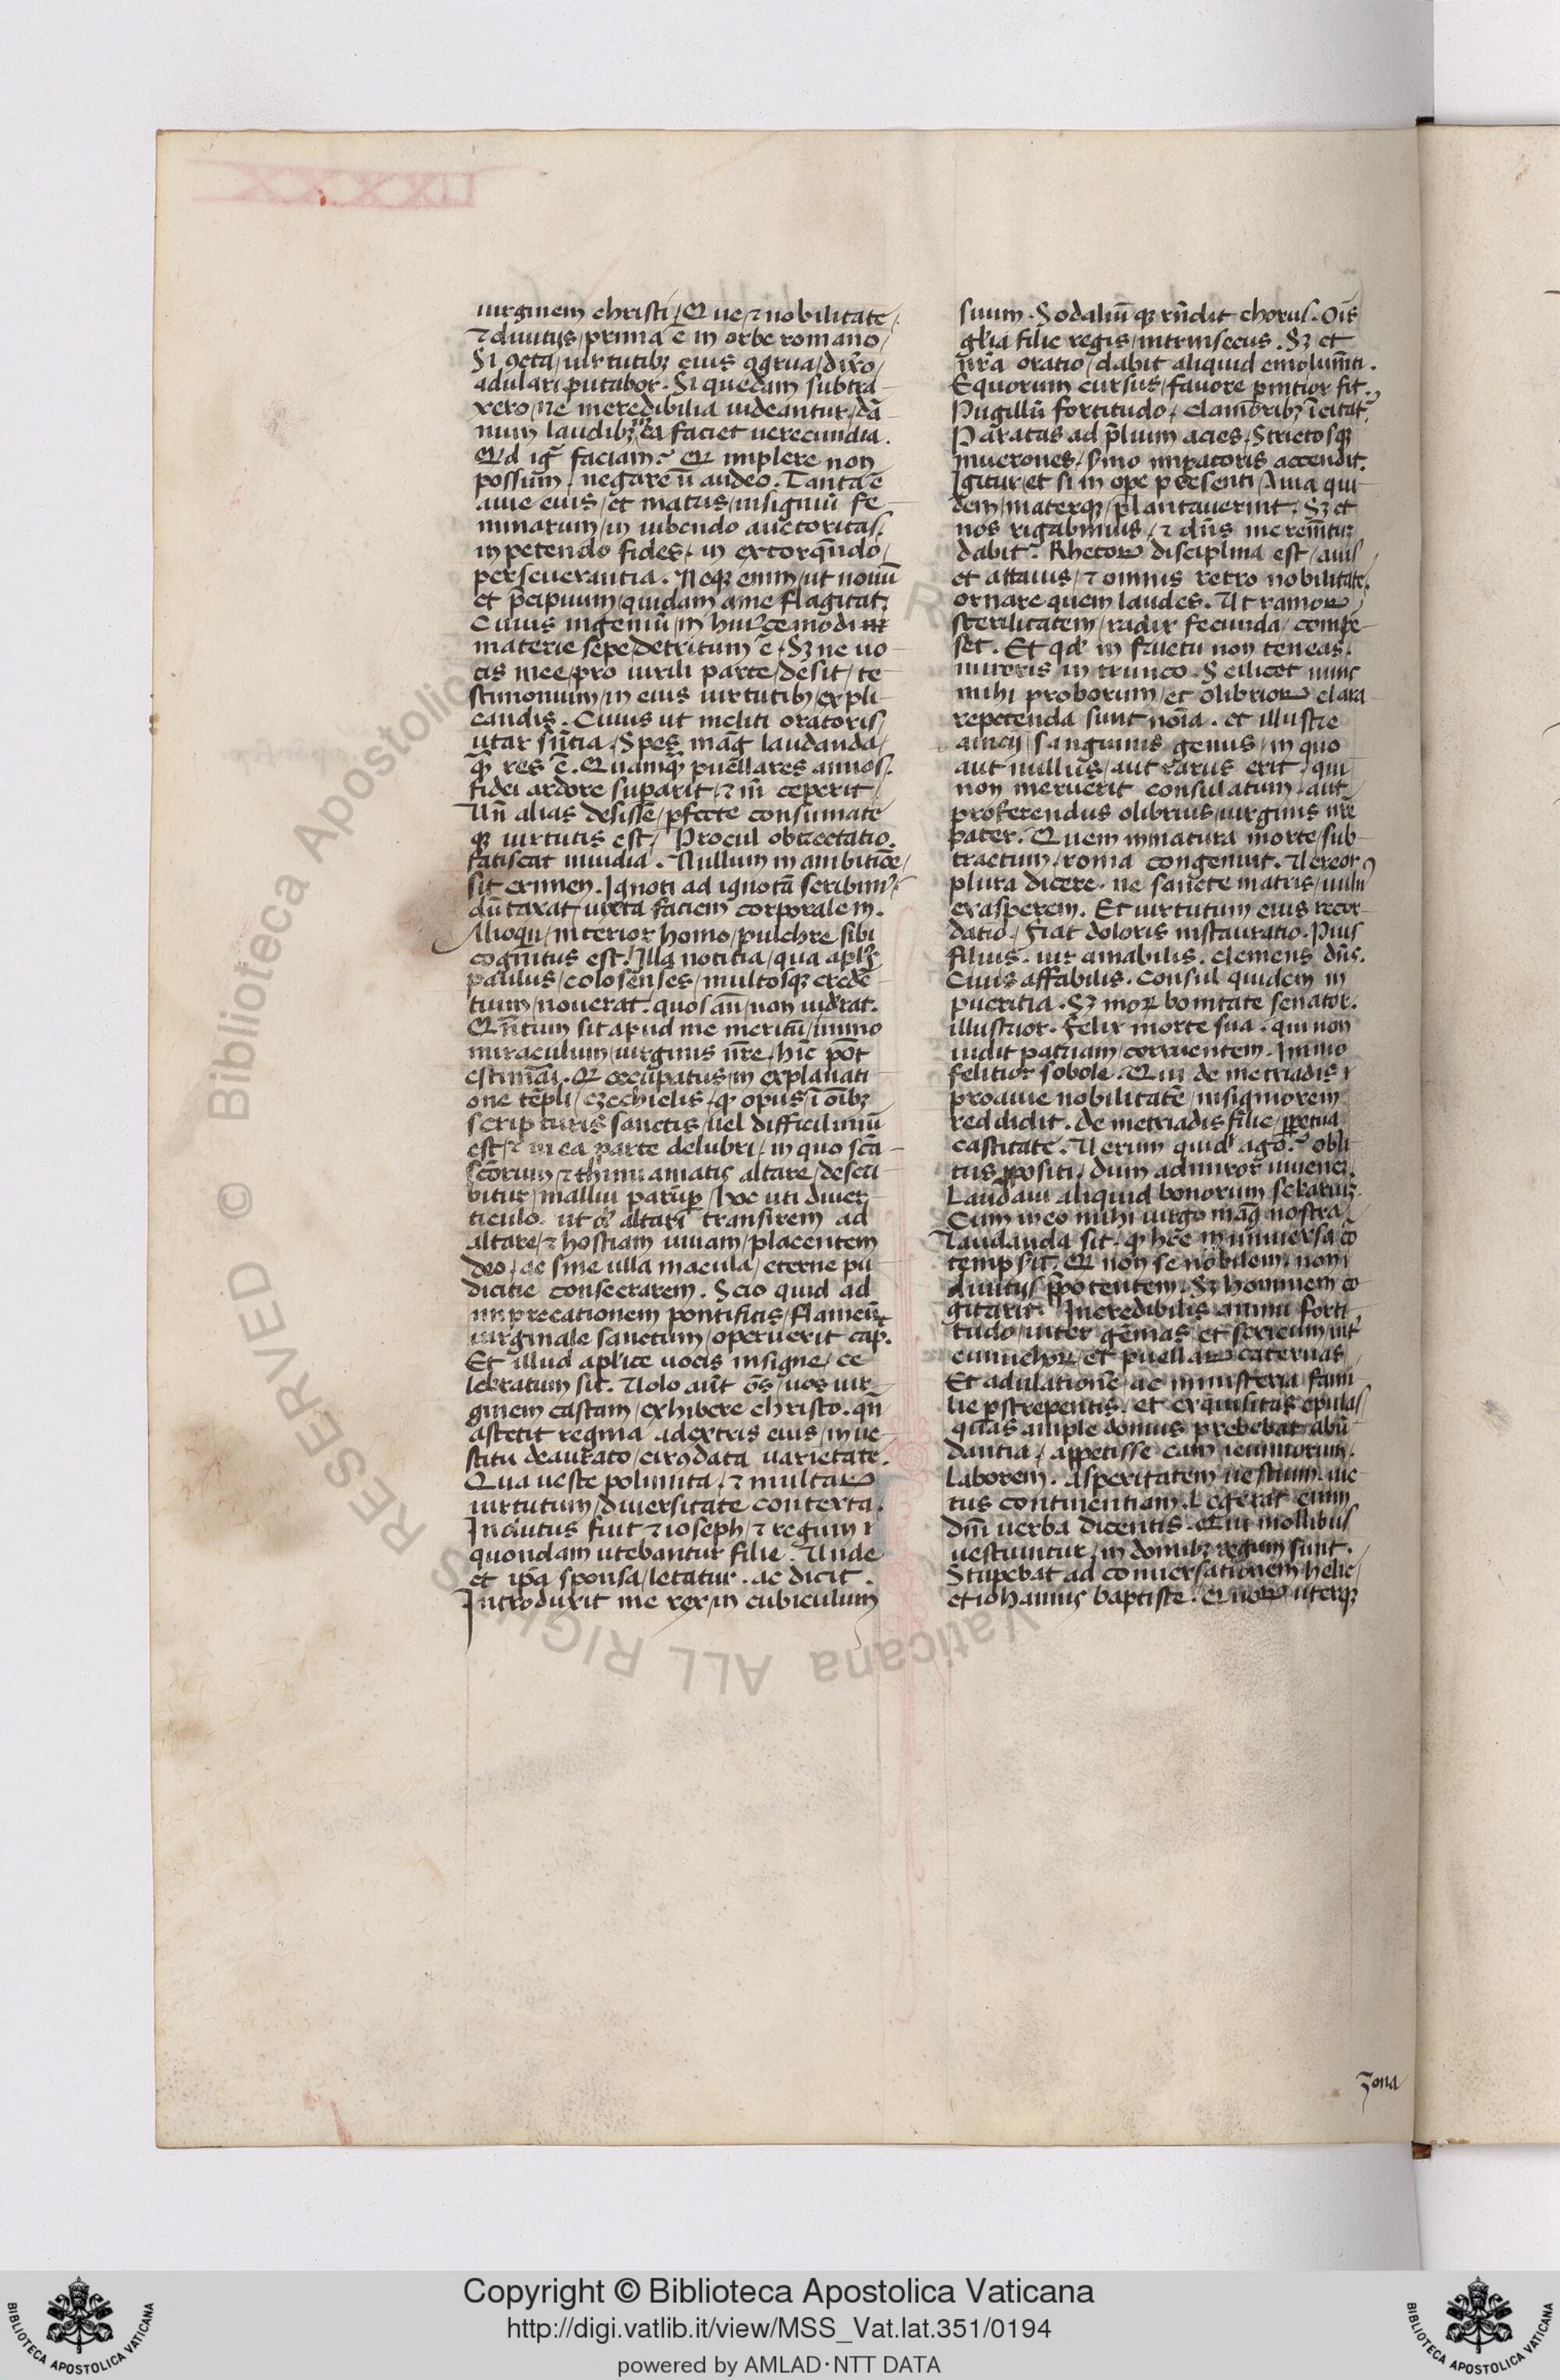 uirginem christi / Que / ⁊ nobilitate /
⁊ diuitijs / prima ē in orbe romano /
Si ꝯcta / uirtutibꝫ eius ꝯgrua / dix̄o /
adulari putabor. Si quedam subtra-
xero / ne incredibilia uideantur / dā-
num laudibꝫ ea faciet uerecundia.
Qd igr̄ faciam? Qꝛ implere non
possum / negare ū audeo. Tanta ē
auie eius / et matris / insigniū fe-
minarum / in iubendo auctoritas /
in petendo fides / in extorqūdo /
perseuerantia. Neqꝫ enim / ut nouū
et p̄cipuum / quidam a me flagitat /
Cuius ingeniū / in huiꝰcemodi
materie sepe detritum ē / Sꝫ ne uo-
cis mee / pro uirili parte / desit / te-
stimonium / in eius uirtutibꝫ / expli-
candis. Cuius ut incliti oratoris /
utar sn̄tia / Spes mag̃ laudanda /
qꝫ res ē. Quamqꝫ puellares annos /
fidei ardore suparit / ⁊ in̄ ceperit /
Un̄ alias desisse / ꝑfecte consumate
qꝫ uirtutis est / Procul obtrectatio.
fatiscat inuidia. Nullum in ambitiōe /
sit crimen. Ignoti ad ignotā scribimꝰ /
dū taxat / iuxta faciem corporalem.
Alioqn / interior homo / pulchre sibi
cognitus est / Illa notitia / qua apl̄s
paulus / colosenses / multosqꝫ credē-
tium / nouerat. quos an̄ / non uid̾rat.
Qn̄tum sit apud me meritū / immo
miraculum / uirginis nr̄e / hīc pōt
estimāi. Qꝛ occupatus / in explanati-
one tēpli / ezechielis / qꝫ opus / ī oībꝫ
scripturis sanctis / uel difficilimū
est / ⁊ in ea parte delubri / in quo scā
scōrum / ⁊ thimiamatis altare / descri-
bitur / malui parūp̱ / hoc uti diuer-
ticulo. ut de altari transirem ad
altare / ⁊ hostiam uiuam / placentem
deo / ac sine ulla macula / eterne pu-
dicitie consecrarem. Scio quid ad
imprecationem pontificis / flameū
uirginale sanctum / operuerit cap̄.
Et illud aplīce uocis insigne / ce-
lebratum sit. Uolo aūt ōs / uos uir-
ginem castam / exhibere christo. qn̄
astetit regina adextris eius / in ue-
stitu deaurato / circꝯdata uarietate.
Qua ueste polimita / ⁊ multaꝝ
uirtutum / diuersitate contexta.
Indutus fuit ⁊ ioseph / ⁊ regum ⁊
quondam utebantur filie. Unde
et ip̄a sponsa / letatur. ac dicit.
Introduxit me rex / in cubiculum
suum. Sodaliūqꝫ rn̄dit chorus. Oīs
gl̄ia filie regis / intrinsecus. Sꝫ et
nr̄a oratio / dabit aliquid emolum̄ti.
Equorum cursus / fauore ꝑnitior fit.
Pugillū fortitudo / clamoribꝫ īcitat̾.
Paratas ad p̄lium acies / Strictosqꝫ
mucrones / sermo imꝑatoris accendit.
Igitur / et si in ope presenti / Auia qui-
dem / materqꝫ / plantauerint. Sꝫ et
nos rigabimus / ⁊ dn̄s incrementū
dabit. Rhetoꝝ disciplina est / auis /
et attauis / ⁊ omnis retro nobilitate /
ornare quem laudes. Ut ramoꝝ /
sterilitatem / radix fecunda / compe-
set. Et qd̄ in fructu non teneas.
mireris in trunco. Scilicet nunc
mihi proborum / et olibrioꝝ clara
repetenda sunt noīa. et illustre
anicij sanguinis genus / in quo
aut nullus / aut rarus erit / qui
non meruerit consulatum / aut
proferendus olibrius / uirginis nr̄e
pater. Quem inmatura morte / sub-
tractum / roma congemit. Uereor
plura dicere. ne sancte matris / uulnꝰ
exasperem. Et uirtutum eius recor-
datio / fiat doloris instauratio. Pius
filius. uir amabilis. clemens dn̄s.
Ciuis affabilis. Consul quidem in
pueritia. Sꝫ moꝝ bonitate senator.
illustrior. felix morte sua. qui non
uidit patriam / corruentem. Immo
felitior sobole. Qui demetriadis ⁊
proauie nobilitatē / insigniorem
reddidit. demetriadis filie / ꝑpetua
castitate. Uerum quid ago? obli-
tus ꝓpositi / dum admiror iuuenē.
Laudaui aliquid bonorum
Cum in eo mihi uirgo mag̃ nostra
laudanda sit. qꝫ hec in uniuersa cō-
tempsit. Qꝛ non se nobilem / non
diuitijs p̄potentem. Sꝫ hominem co-
gitarit. Incredibilis animi forti-
tudo / inter gēmas / et sericum / int̾
eunuchoꝝ / et puellaꝝ cateruas /
Et adulationē ac ministeria / fami-
lie ꝑstrepentis / et exquisitas epulas /
quas ample domus prebebat abū-
dantia / appetisse eam ieiuniorum.
laborem. Asperitatem uestium. uic-
tus continentiam. Legerat enim
dn̄i uerba dicentis. Qui mollibus
uestiuntur / in domibꝫ regum sunt.
Stupebat ad conuersationem helie /
et iohannis baptiste. Quoꝝ uterqꝫ
zona
Copyright © Biblioteca Apostolica Vaticana
http://digi.vatlib.it/view/MSS_Vat.lat.351/0194
powered by AMLAD·NTT DATA
BIBLIOTECA APOSTOLICA VATICANA
BIBLIOTECA APOSTOLICA VATICANA